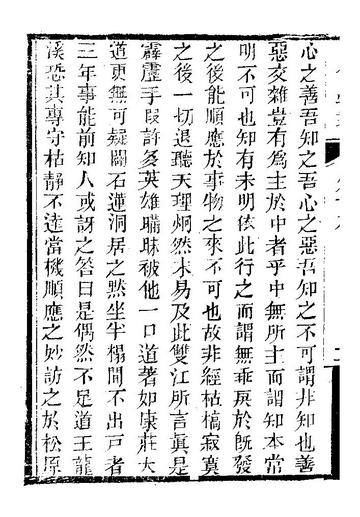 心之善吾知之吾心之惡吾知之不可謂非知也善
惡交雜豈有為主於中者乎中無所主而謂知本常
明不可也知有未明依此行之而謂無乖戾於既發
之後能順應於事物之來不可也故非經枯槁寂寞
之後一切退聽天理烱然未易及此雙江所言眞是
霹靂手叚許多英雄瞞昧被他一口道著如康莊大
道更無可疑闢石蓮洞居之黙坐半榻間不出戸者
三年事能前知人或訝之答曰是偶然不足道王龍
溪恐其專守枯靜不達當機順應之妙訪之於松原